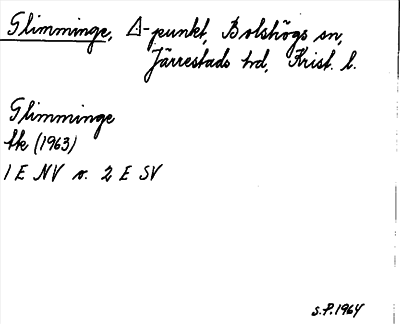 Glimminge, △-punkt, Bolshögs sn,
Järrestads hd, Krist. l.
Glimminge
Ek (1963)
1 E NV o. 2 E SV
S.P. 1964